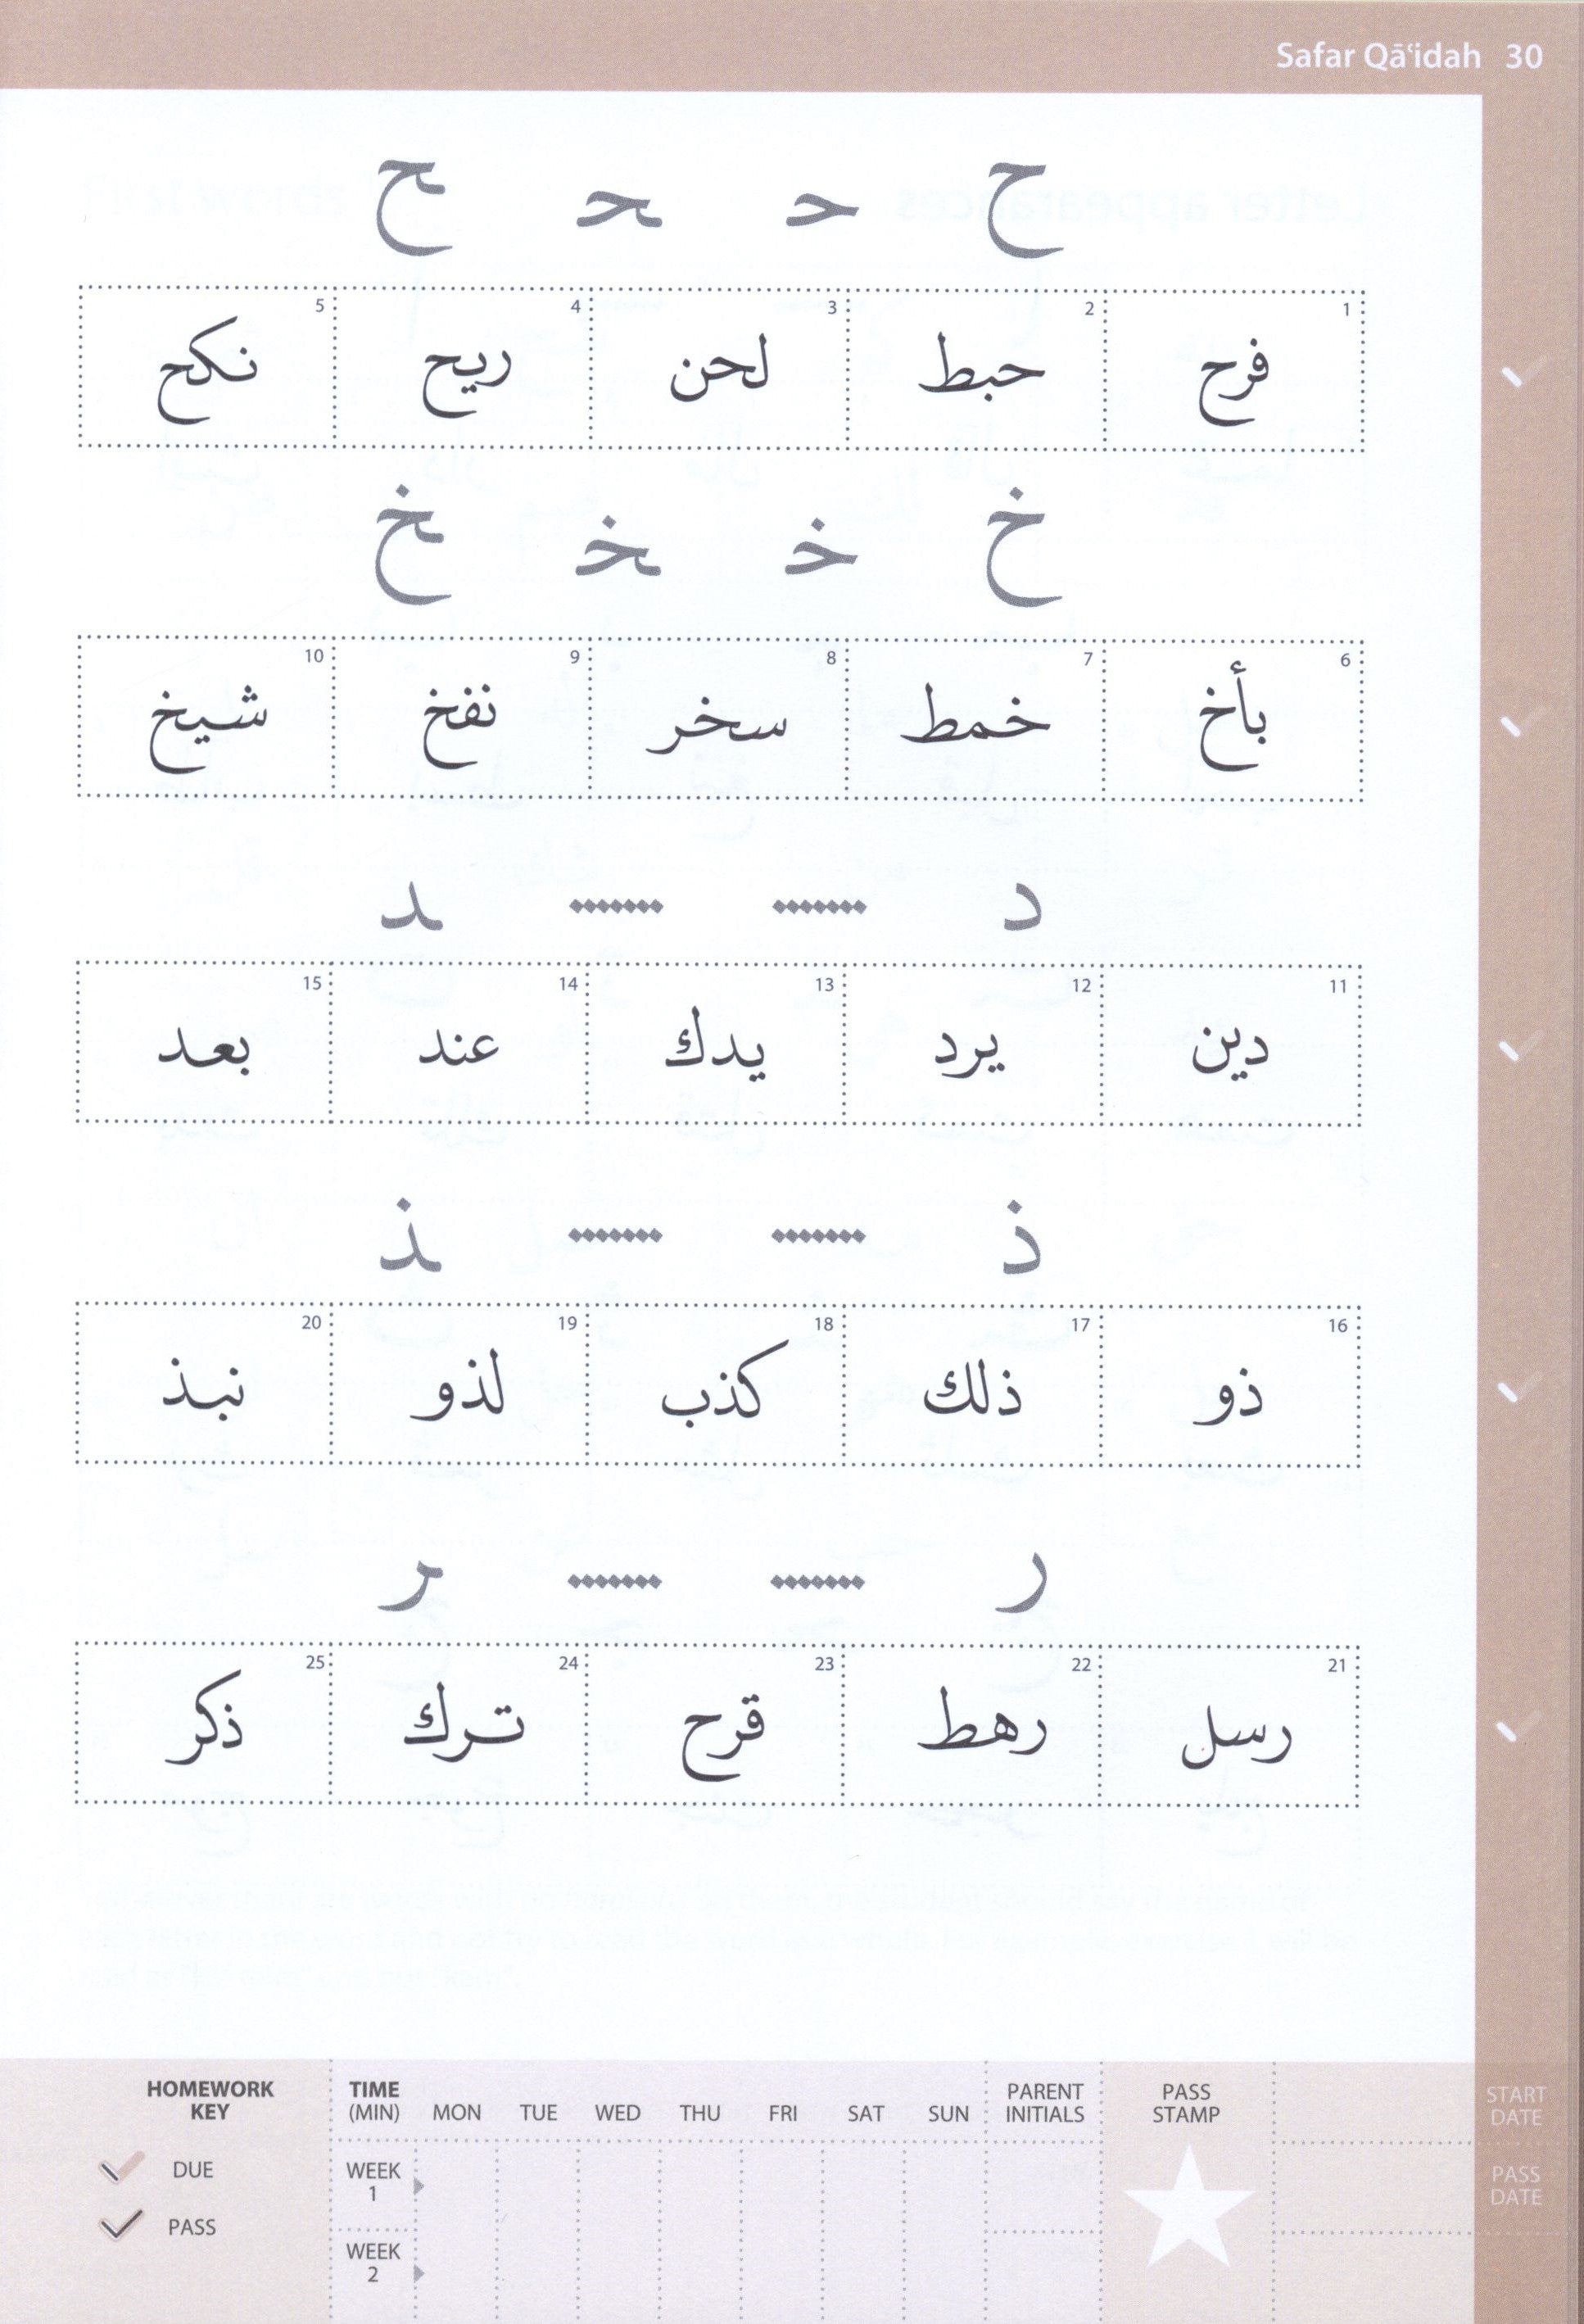 Safar Qāʿidah 30
ح حـ ـحـ ـح
1 فرح 2 حبط 3 لحن 4 ريح 5 نكح
خ خـ ـخـ ـخ
6 بأخ 7 خمط 8 سخر 9 نفخ 10 شيخ
د ـد
11 دين 12 يرد 13 يدك 14 عند 15 بعد
ذ ـذ
16 ذو 17 ذلك 18 كذب 19 لذو 20 نبذ
ر ـر
21 رسل 22 رهط 23 قرح 24 ترك 25 ذكر
HOMEWORK KEY
DUE
PASS
TIME (MIN) MON TUE WED THU FRI SAT SUN PARENT INITIALS
WEEK 1
WEEK 2
PASS STAMP
START DATE
PASS DATE